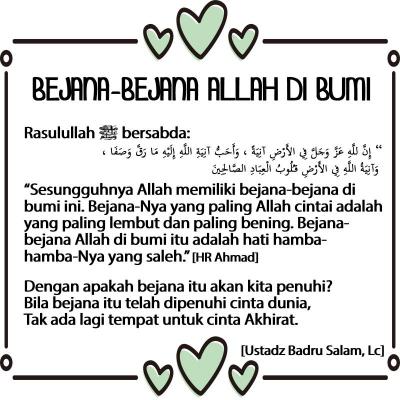 BEJANA-BEJANA ALLAH DI BUMI
Rasulullah ﷺ bersabda:
“ إِنَّ لِلَّهِ عَزَّ وَجَلَّ فِي الأَرْضِ آنِيَةً ، وَأَحَبُّ آنِيَةِ اللَّهِ إِلَيْهِ مَا رَقَّ وَصَفَا ،
وَآنِيَةُ اللَّهِ فِي الأَرْضِ قُلُوبُ الْعِبَادِ الصَّالِحِينَ
“Sesungguhnya Allah memiliki bejana-bejana di
bumi ini. Bejana-Nya yang paling Allah cintai adalah
yang paling lembut dan paling bening. Bejana-
bejana Allah di bumi itu adalah hati hamba-
hamba-Nya yang saleh.” [HR Ahmad]
Dengan apakah bejana itu akan kita penuhi?
Bila bejana itu telah dipenuhi cinta dunia,
Tak ada lagi tempat untuk cinta Akhirat.
[Ustadz Badru Salam, Lc]